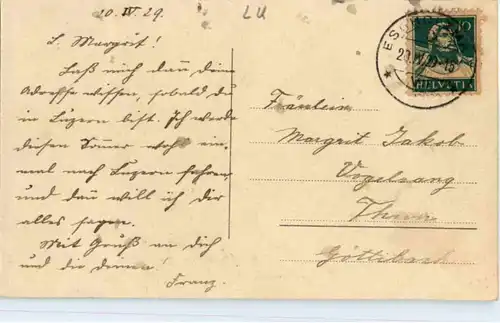 20. IV. 29.
LU
L. Margrit!
Laß mich dan̄ deine
Adresse wissen, sobald du
in Luzern bist. Ich werde
diesen Som̄er wohl ein-
mal nach Luzern fahren,
und dan̄ will ich dir
alles sagen.
Mit Gruß an dich
und die deinen!
Franz.
10
HELVETIA
Fräulein
Margrit Jakob
Vogelsang
Thun